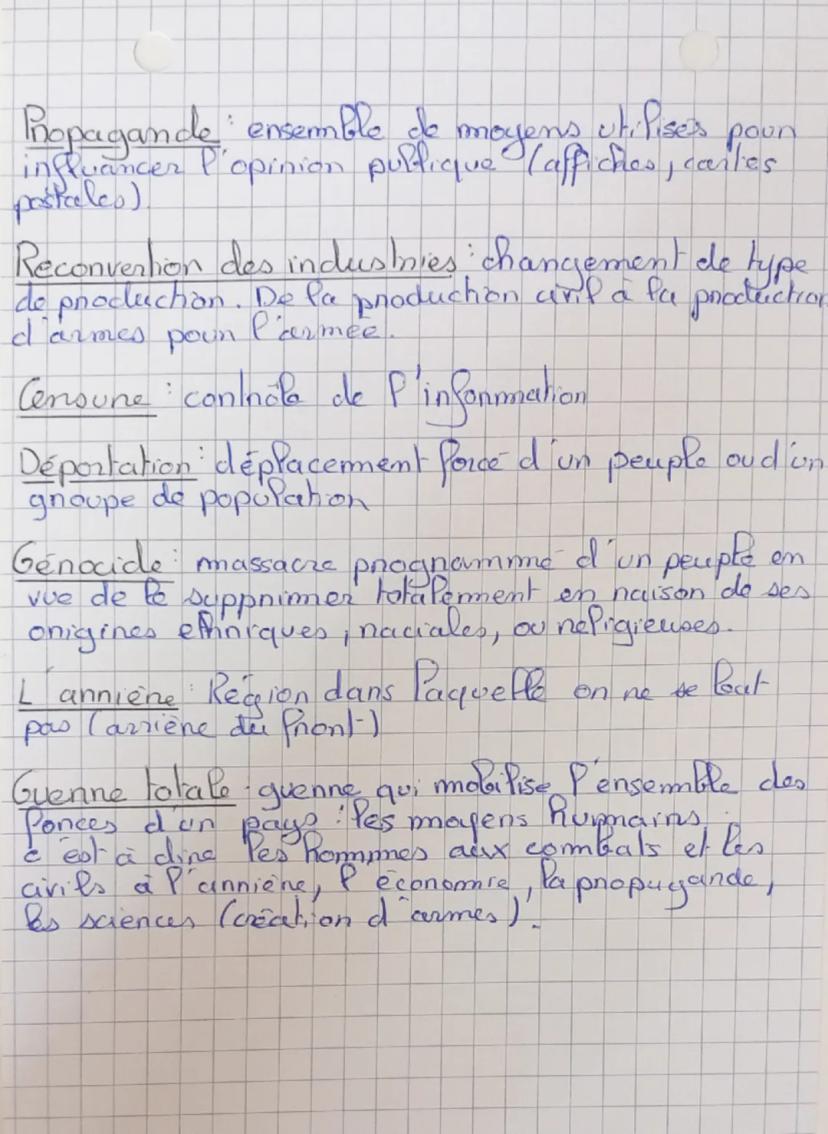 Propagande : ensemble de moyens utilisés pour
influencer l'opinion publique (affiches, cartes
postales)
Reconvertion des industries : changement de type
de production. De la production civil à la production
d'armes pour l'armée.
Censure : contrôle de l'information
Déportation : déplacement forcé d'un peuple ou d'un
groupe de population
Génocide : massacre programmé d'un peuple en
vue de le supprimer totalement en raison de ses
origines ethniques, raciales, ou religieuses.
L'arrière : Région dans laquelle on ne se bat
pas (arrière du front)
Guerre totale : guerre qui mobilise l'ensemble des
forces d'un pays : les moyens humains
c'est à dire les hommes aux combats et les
civils à l'arrière, l'économie, la propagande,
les sciences (création d'armes).